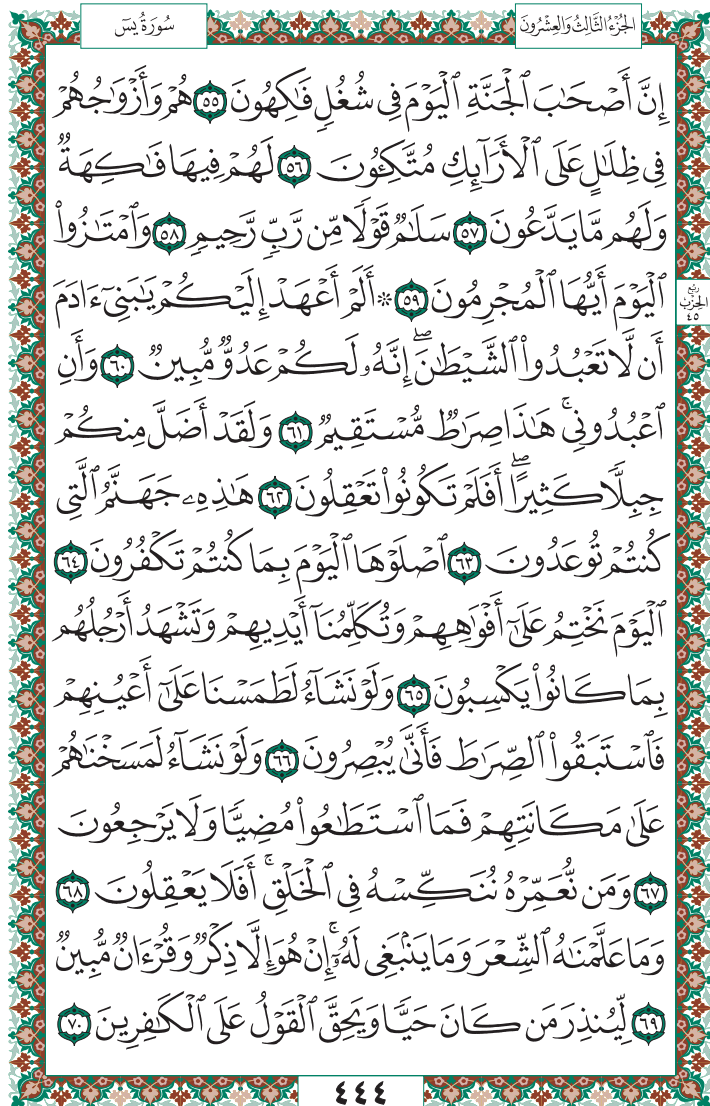 الجُزْءُ الثَّالِثُ وَالعِشْرُونَ
سُورَةُ يسٓ
إِنَّ أَصْحَٰبَ ٱلْجَنَّةِ ٱلْيَوْمَ فِى شُغُلٍ فَٰكِهُونَ ٥٥ هُمْ وَأَزْوَٰجُهُمْ
فِى ظِلَٰلٍ عَلَى ٱلْأَرَآئِكِ مُتَّكِـُٔونَ ٥٦ لَهُمْ فِيهَا فَٰكِهَةٌ
وَلَهُم مَّا يَدَّعُونَ ٥٧ سَلَٰمٌ قَوْلًا مِّن رَّبٍّ رَّحِيمٍ ٥٨ وَٱمْتَٰزُوا۟
ٱلْيَوْمَ أَيُّهَا ٱلْمُجْرِمُونَ ٥٩ ۞ أَلَمْ أَعْهَدْ إِلَيْكُمْ يَٰبَنِىٓ ءَادَمَ
رُبع
الحِزْب
٤٥
أَن لَّا تَعْبُدُوا۟ ٱلشَّيْطَٰنَ ۖ إِنَّهُۥ لَكُمْ عَدُوٌّ مُّبِينٌ ٦٠ وَأَنِ
ٱعْبُدُونِى ۚ هَٰذَا صِرَٰطٌ مُّسْتَقِيمٌ ٦١ وَلَقَدْ أَضَلَّ مِنكُمْ
جِبِلًّا كَثِيرًا ۖ أَفَلَمْ تَكُونُوا۟ تَعْقِلُونَ ٦٢ هَٰذِهِۦ جَهَنَّمُ ٱلَّتِى
كُنتُمْ تُوعَدُونَ ٦٣ ٱصْلَوْهَا ٱلْيَوْمَ بِمَا كُنتُمْ تَكْفُرُونَ ٦٤
ٱلْيَوْمَ نَخْتِمُ عَلَىٰٓ أَفْوَٰهِهِمْ وَتُكَلِّمُنَآ أَيْدِيهِمْ وَتَشْهَدُ أَرْجُلُهُم
بِمَا كَانُوا۟ يَكْسِبُونَ ٦٥ وَلَوْ نَشَآءُ لَطَمَسْنَا عَلَىٰٓ أَعْيُنِهِمْ
فَٱسْتَبَقُوا۟ ٱلصِّرَٰطَ فَأَنَّىٰ يُبْصِرُونَ ٦٦ وَلَوْ نَشَآءُ لَمَسَخْنَٰهُمْ
عَلَىٰ مَكَانَتِهِمْ فَمَا ٱسْتَطَٰعُوا۟ مُضِيًّا وَلَا يَرْجِعُونَ
٦٧ وَمَن نُّعَمِّرْهُ نُنَكِّسْهُ فِى ٱلْخَلْقِ ۚ أَفَلَا يَعْقِلُونَ ٦٨
وَمَا عَلَّمْنَٰهُ ٱلشِّعْرَ وَمَا يَنۢبَغِى لَهُۥٓ ۚ إِنْ هُوَ إِلَّا ذِكْرٌ وَقُرْءَانٌ مُّبِينٌ
٦٩ لِّيُنذِرَ مَن كَانَ حَيًّا وَيَحِقَّ ٱلْقَوْلُ عَلَى ٱلْكَٰفِرِينَ ٧٠
٤٤٤